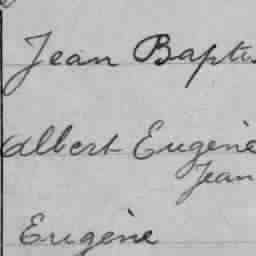 Jean Baptis
Albert Eugène
Jean
Eugène